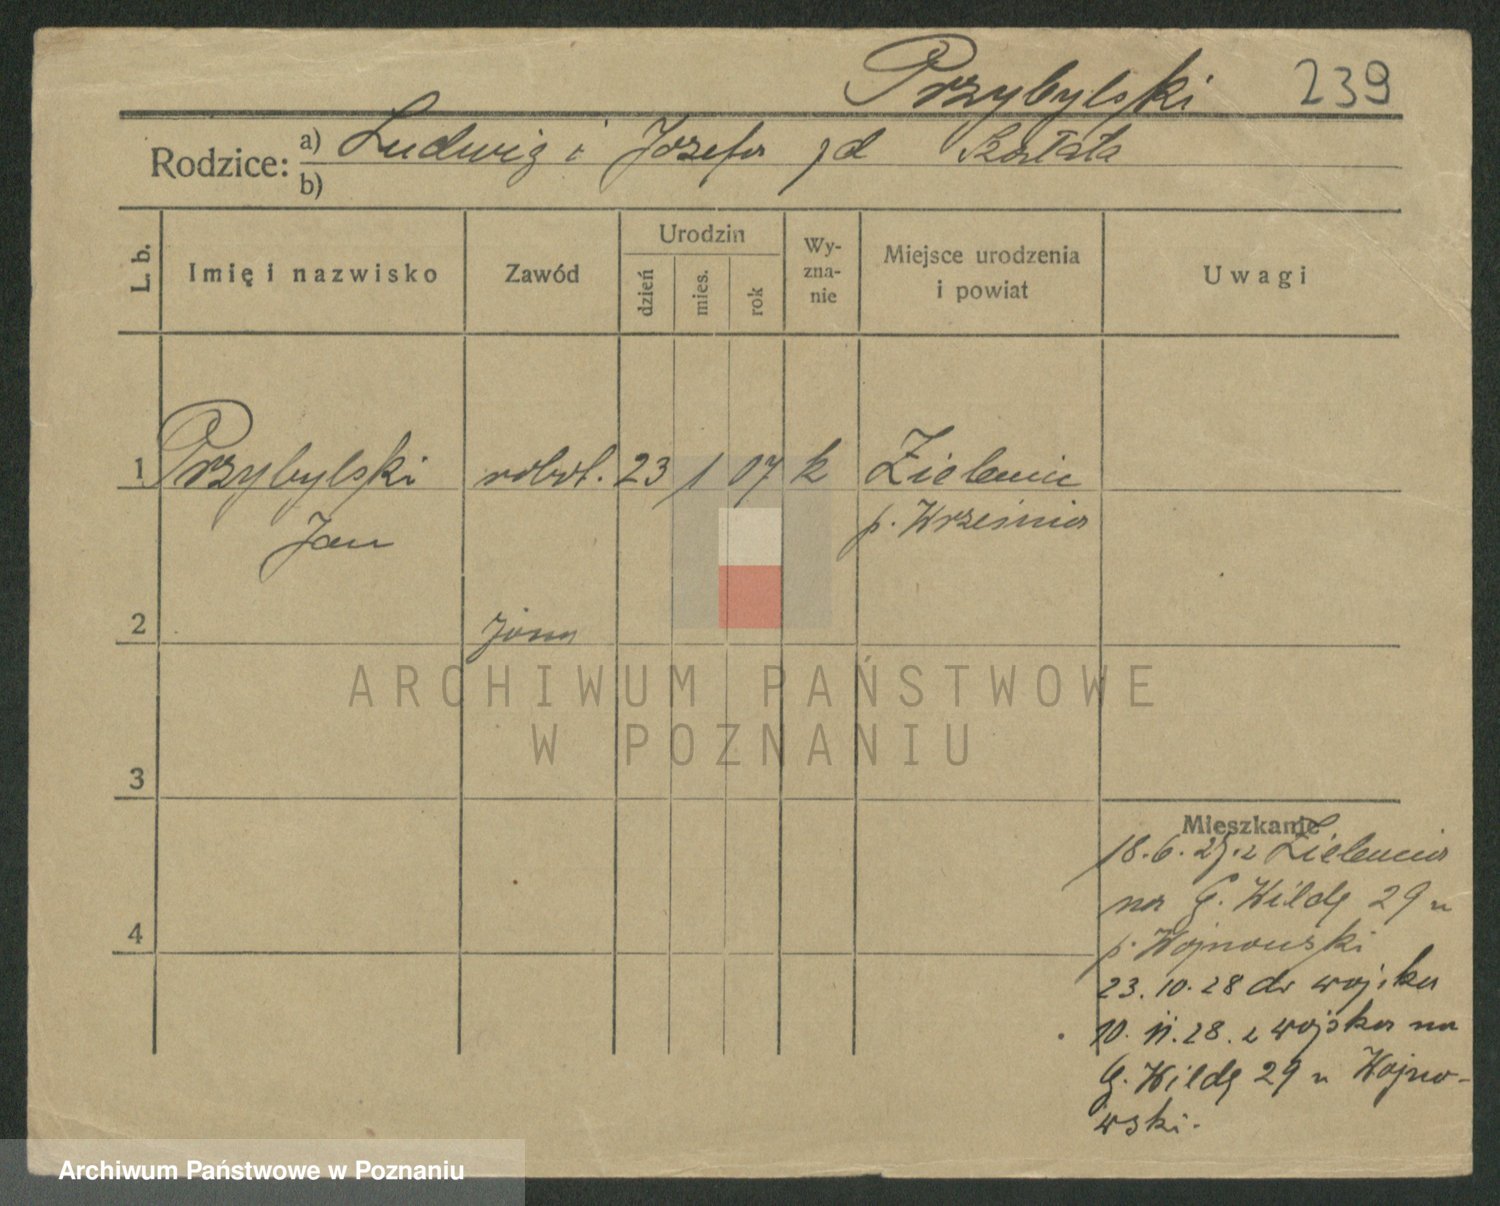 Przybylski 239
Rodzice: a) Ludwig i Józefa
b)
L. b. Imię i nazwisko Zawód Urodzin dzień mies. rok Wy-zna-nie Miejsce urodzenia i powiat Uwagi
1 Przybylski robot. 23 1 07 k Zieleniec
Jan p. Września
2 żona
ARCHIWUM PAŃSTWOWE
W POZNANIU
3
Mieszkanie
18.6.27. z Zielenica
na G. Wildę 29 u
4 p. Wojnowski
23.10.28 do wojska
10.11.28. z wojska na
G. Wildę 29 u Wojno-
wski.
Archiwum Państwowe w Poznaniu